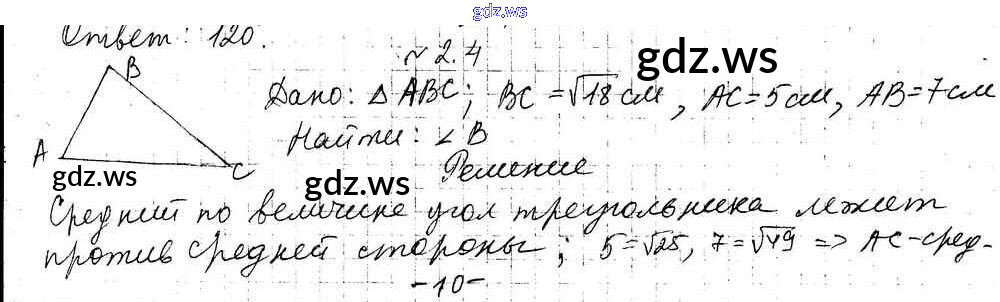 gdz.ws
Ответ: 120.
№ 2.4
gdz.ws
B
Дано: △ABC; BC = √18 см, AC = 5 см, AB = 7 см
Найти: ∠B
A
C
Решение
gdz.ws
gdz.ws
gdz.ws
Средний по величине угол треугольника лежит
против средней стороны; 5 = √25, 7 = √49 => AC - сред-
-10-